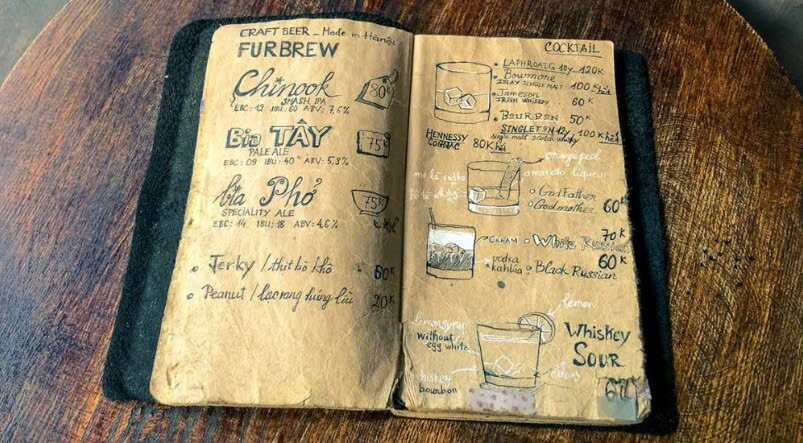 CRAFT BEER _ Made in Hànội
FURBREW
Chinook
80K
SMASH IPA
EBC: 12 IBU: 60 ABV: 7,6%
Bia TÂY
75K
PALE ALE
EBC: 09 IBU: 40 ABV: 5,3%
bia Phở
75K
SPECIALITY ALE
EBC: 14 IBU: 18 ABV: 4,6%
Jerky / thịt bò khô 60K
Peanut / lạc rang húng lìu 20K
COCKTAIL
LAPHROAIG 10y_ 120K
Boumone 100K
ISLAY SINGLE MALT
Jameson 60K
IRISH WHISKY
BOURBON 50K
SINGLETON 12y 100K
Single malt scotch whisky
HENNESSY 80K
COGNAC
orange peel
amaretto liqueur
vodka
GodFather
Godmother 60K
70K
CREAM White Russian
60K
vodka
kahlúa Black Russian
lemon
without
egg white
Whiskey
SOUR
whiskey
bourbon